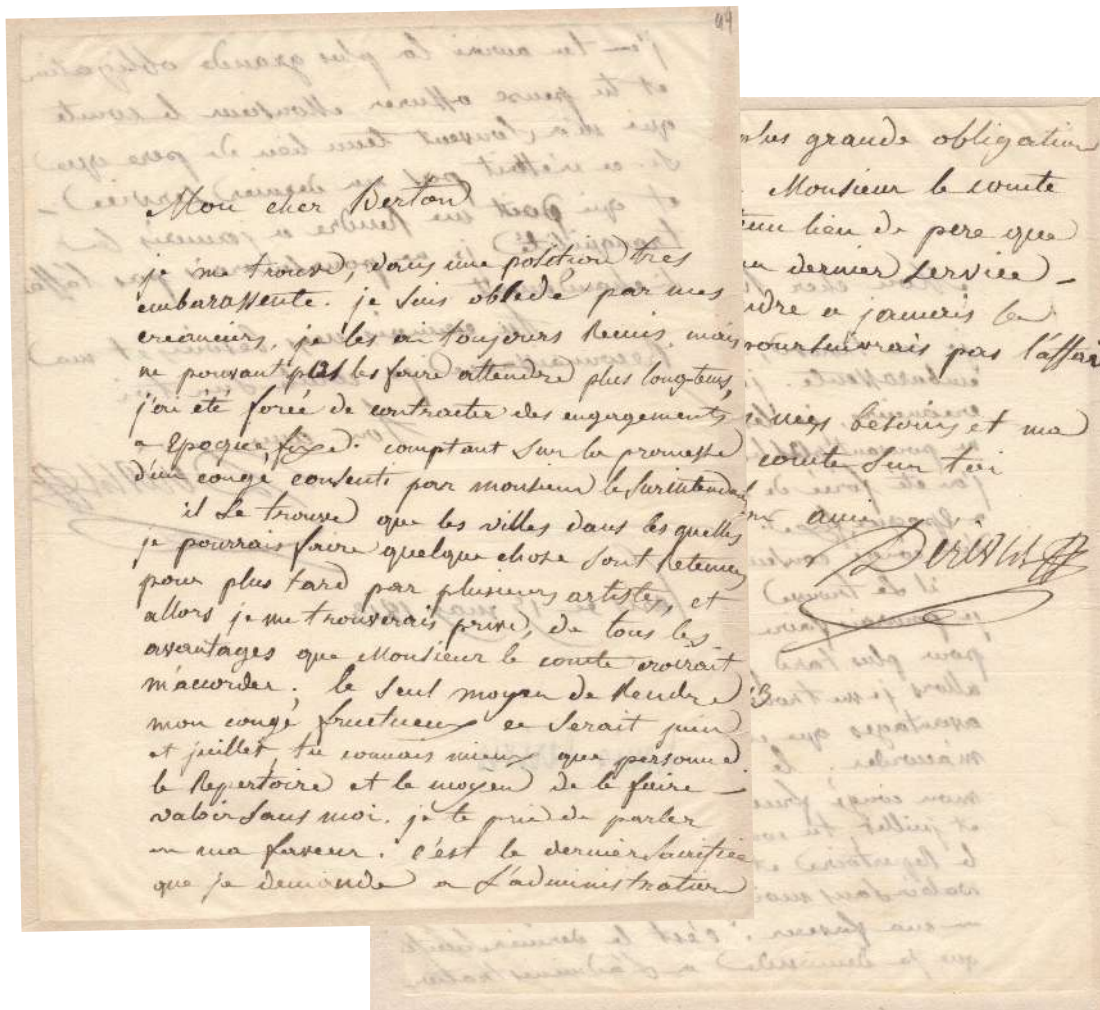 49
Mon cher Berton
je me trouve, dans une position tres
embarassente. je suis obsedé par mes
creanciers, je les ai toujours Remis, mais
ne pouvant plus les faire attendre plus long-tems,
j'ai été forcé de contracter des engagements
a Epoque, fixe. comptant sur la promesse
d'un congé consenti par monsieur le surintendant
il se trouve que les villes dans les quelles
je pourrais faire quelque chose sont Retenues
pour plus tard par plusieurs artistes, et
allors je me trouverais privé, de tous les
avantages que Monsieur le comte croirait
m'accorder. le seul moyen de Rendre
mon congé fructueux ce serait juin
et juillet, tu connais mieux que personne
le Repertoire et le moyen de le faire
valoir sans moi. je te prie de parler
en ma faveur. c'est le dernier sacrifice
que je demande a L'administration
plus grande obligation
Monsieur le comte
tenu lieu de pere que
dernier service
a jamais la
poursuivrais pas l'affaire
mes besoins et ma
comte sur toi
ami
Derivis